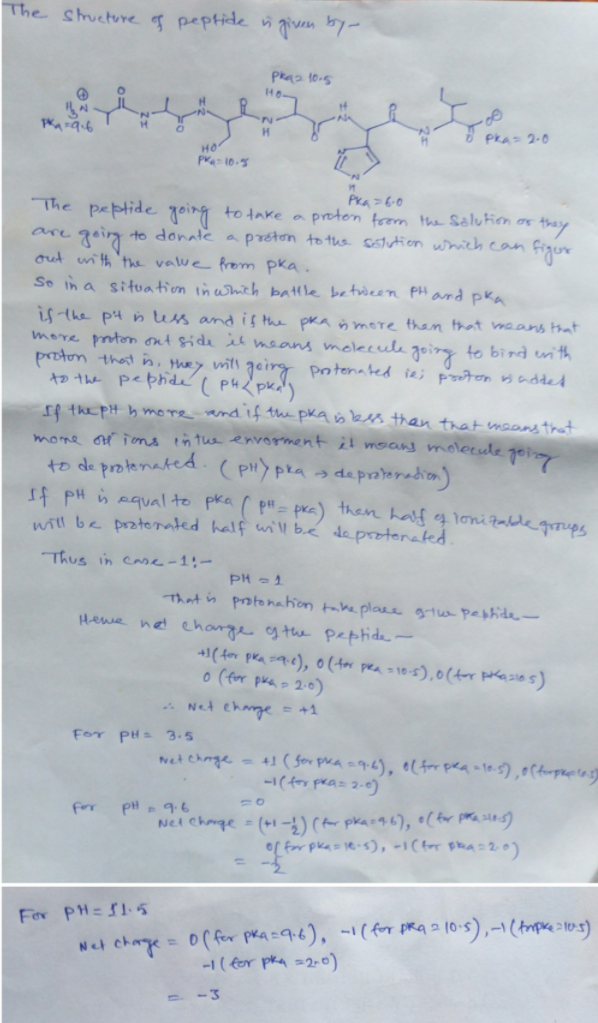 The structure of peptide is given by -
PKa= 10.5
HO
⊕
H3N
O
N
H
O
H
N
O
N
H
O
H
N
O
N
H
O
O⊖
PKa=9.6
HO
PKa=10.5
N
N
H
PKa = 2.0
PKa = 6.0
The peptide going to take a proton from the solution or they
are going to donate a proton to the solution which can figur
out with the value from pka.
So in a situation in which battle between PH and pka
if the pH is less and if the pka is more then that means that
more proton out side it means molecule going to bind with
proton that is, they will going protonated ie; proton is added
to the peptide ( PH<pka)
If the pH is more and if the pka is less than that means that
more OH ions in the envorment it means molecule going
to deprotonated. ( pH> pka → deprotonation)
If pH is equal to pka ( pH = pka) then half of ionizable groups
will be protonated half will be deprotonated.
Thus in case -1:-
PH = 1
That is protonation take place of the peptide—
Hence net charge of the peptide—
+1(for pka =9.6), 0(for pka =10.5), 0(for pka=10.5)
0 (for pka = 2.0)
∴ Net charge = +1
For PH= 3.5
Net charge = +1 ( for pka =9.6), 0(for pka =10.5), 0(for pka=10.5)
-1(for pka= 2.0)
=0
For pH = 9.6
Net charge = (+1 -½) (for pka=9.6), 0(for pka=10.5)
0( for pka=10.5), -1(for pka=2.0)
= -½
For PH= 11.5
Net charge = 0(for pka=9.6), -1( for pka = 10.5), -1(for pka=10.5)
-1( for pka =2.0)
= -3